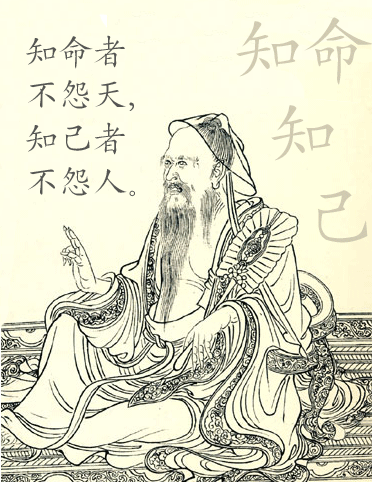 知命者
不怨天，
知己者
不怨人。
知命
知
己